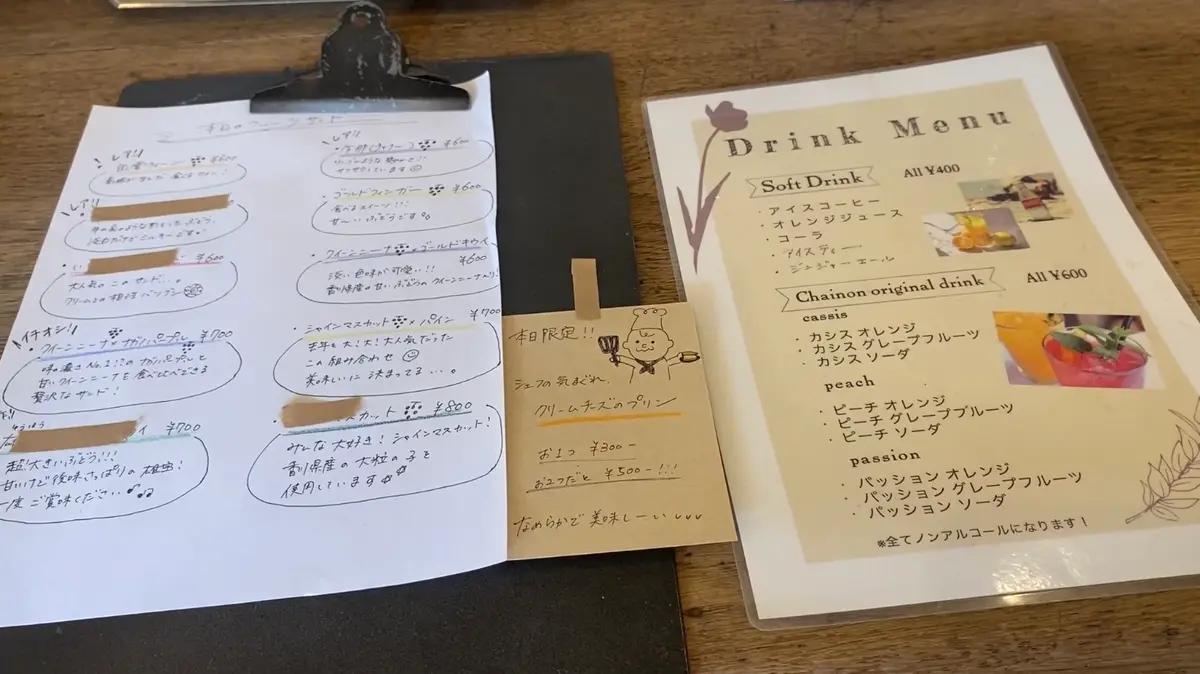 本日のフルーツサンド
レア!!
¥600
レア!!
¥600
大人気のこのサンド…。
クリームとの相性バツグン
イチオシ!!
クイーンニーナ × ¥700
味の濃さNo.1!!の
甘いクイーンニーナを食べ比べできる
贅沢なサンド!
¥700
超!大きいぶどう!!!
甘いけど後味さっぱりの
一度ご賞味ください♪♫
レア!!
¥600
ゴールドフィンガー ¥600
食べるスイーツ!!!
甘〜いぶどうです
クイーンニーナ×ゴールドキウイ
¥600
淡い色味が可愛い!!
香川県産の甘いぶどうのクイーンニーナ入り!
・シャインマスカット × パイン ¥700
去年も大!大!大人気だった
この組み合わせ
美味しいに決まってる…。
スカット ¥800
みんな大好き!シャインマスカット!
香川県産の大粒の子を
使用しています
本日限定!!
シェフの気まぐれ
クリームチーズのプリン
お1つ ¥300-
お2つだと ¥500-!!!
なめらかで美味しーい
Drink Menu
Soft Drink All ¥400
・アイスコーヒー
・オレンジジュース
・コーラ
・アイスティー
・ジンジャーエール
Chainon original drink All ¥600
cassis
・カシス オレンジ
・カシス グレープフルーツ
・カシス ソーダ
peach
・ピーチ オレンジ
・ピーチ グレープフルーツ
・ピーチ ソーダ
passion
・パッション オレンジ
・パッション グレープフルーツ
・パッション ソーダ
※全てノンアルコールになります!